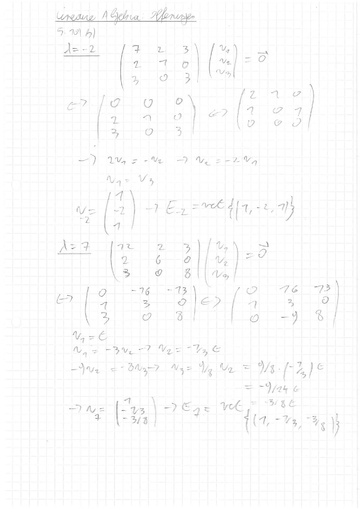 Lineare Algebra
λ=-2 (7 2 3 / 2 1 0 / 3 0 3) (v₁ / v₂ / v₃) = 0⃗
<=> (0 0 0 / 2 1 0 / 3 0 3) <=> (2 1 0 / 1 0 1 / 0 0 0)
-> 2v₁ = -v₂ -> v₂ = -2v₁
v₁ = v₃
v₋₂ = (1 / -2 / 1) -> E₋₂ = vct {(1, -2, 1)}
λ=7 (12 2 3 / 2 6 0 / 3 0 8) (v₁ / v₂ / v₃) = 0⃗
<=> (0 -16 -13 / 1 3 0 / 3 0 8) <=> (0 16 13 / 1 3 0 / 0 -9 8)
v₁ = t
v₁ = -3v₂ -> v₂ = -1/3 t
-9v₂ = -8v₃ -> v₃ = 9/8 v₂ = 9/8 · (-1/3) t
= -9/24 t
= -3/8 t
-> v₇ = (1 / -1/3 / -3/8) -> E₇ = vct {(1, -1/3, -3/8)}